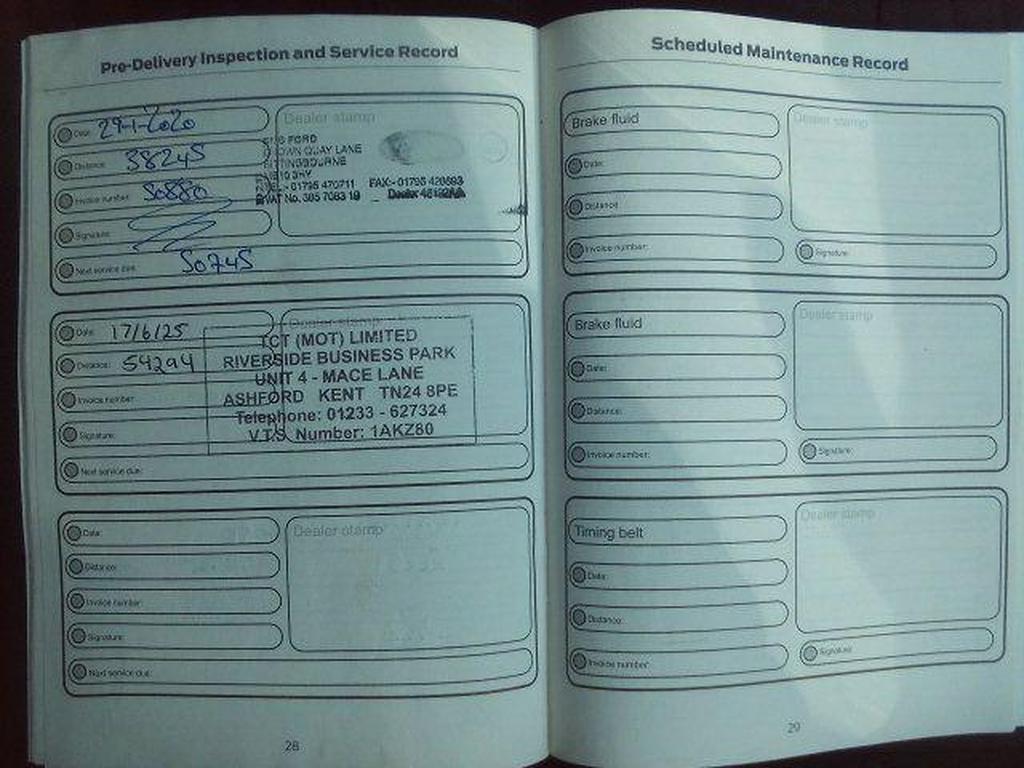 Pre-Delivery Inspection and Service Record
Date: 29-1-2020
Distance: 38245
Invoice number: 50880
Signature:
Next service due: 50745
Dealer stamp
FORD
QUAY LANE
SITTINGBOURNE
TEL:- 01795 470711 FAX:- 01795 428693
VAT No. 385 7083 19
Date: 17/6/25
Distance: 54294
Invoice number:
Signature:
Next service due:
Dealer stamp
TCT (MOT) LIMITED
RIVERSIDE BUSINESS PARK
UNIT 4 - MACE LANE
ASHFORD KENT TN24 8PE
Telephone: 01233 - 627324
V.T.S. Number: 1AKZ80
Date:
Distance:
Invoice number:
Signature:
Next service due:
Dealer stamp
28
Scheduled Maintenance Record
Brake fluid
Date:
Distance:
Invoice number:
Dealer stamp
Signature:
Brake fluid
Date:
Distance:
Invoice number:
Dealer stamp
Signature:
Timing belt
Date:
Distance:
Invoice number:
Dealer stamp
Signature:
29